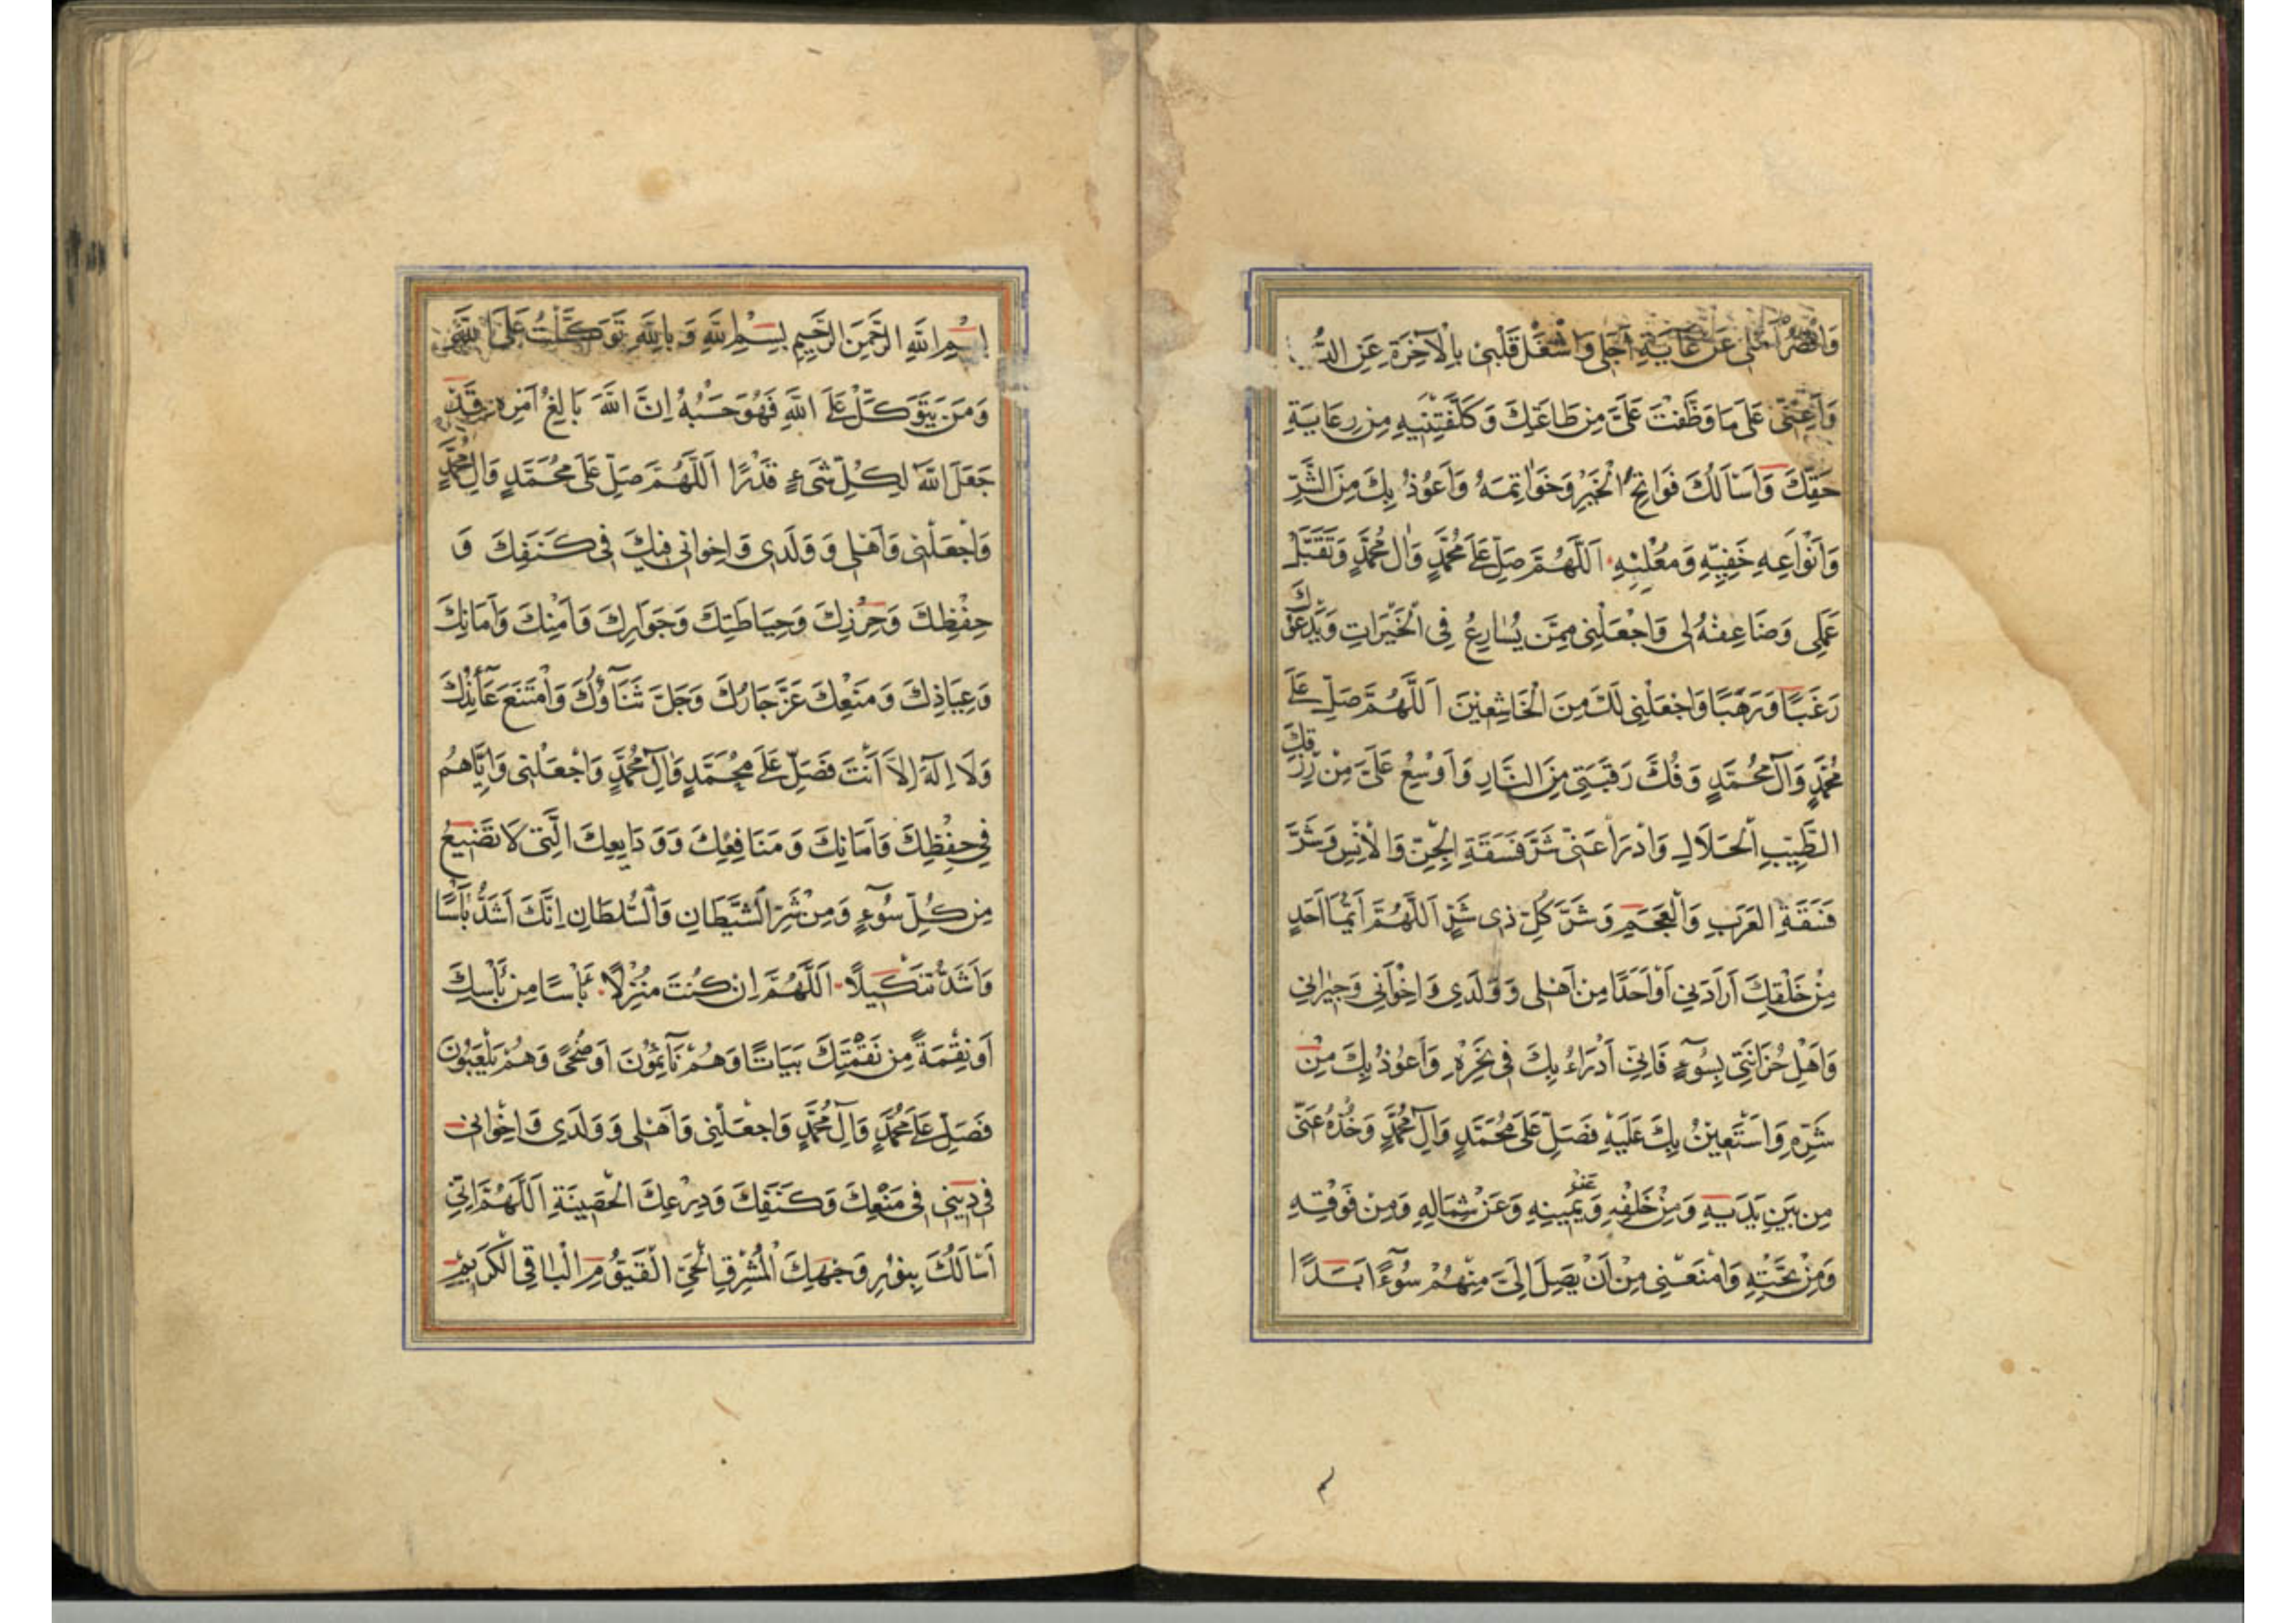 وَاقْصُرْ اَمَلی عَنْ غَايَةِ اَجَلی وَاشْغَلْ قَلْبی بِالْآخِرَةِ عَنِ
وَاَعِنّی عَلَی مَا وَظَّفْتَ عَلَیَّ مِنْ طَاعَتِكَ وَكَلَّفْتَنيهِ مِنْ رِعَايَةِ
حَقِّكَ وَاَسْاَلُكَ فَوَاتِحَ الْخَيْرِ وَخَوَاتِمَهُ وَاَعُوذُ بِكَ مِنَ الشَّرِّ
وَاَنْوَاعِهِ خَفِيِّهِ وَمُعْلِنِهِ اَللَّهُمَّ صَلِّ عَلَی مُحَمَّدٍ وَآلِ مُحَمَّدٍ وَتَقَبَّلْ
عَمَلِی وَضَاعِفْهُ لِی وَاجْعَلْنِی مِمَّنْ يُسَارِعُ فِی الْخَيْرَاتِ وَيَدْعُوكَ
رَغَبًا وَرَهَبًا وَاجْعَلْنِی لَكَ مِنَ الْخَاشِعِينَ اَللَّهُمَّ صَلِّ عَلَی
مُحَمَّدٍ وَآلِ مُحَمَّدٍ وَفُكَّ رَقَبَتِی مِنَ النَّارِ وَاَوْسِعْ عَلَیَّ مِنْ رِزْقِكَ
الطَّيِّبِ الْحَلَالِ وَادْرَأْ عَنّی شَرَّ فَسَقَةِ الْجِنِّ وَالْاِنْسِ وَشَرَّ
فَسَقَةِ الْعَرَبِ وَالْعَجَمِ وَشَرَّ كُلِّ ذِی شَرٍّ اَللَّهُمَّ اَيُّمَا اَحَدٍ
مِنْ خَلْقِكَ اَرَادَنِی اَوْ اَحَدًا مِنْ اَهْلِی وَوَلَدِی وَاِخْوَانِی وَجِيرَانِی
وَاَهْلِ حُزَانَتِی بِسُوۤءٍ فَاِنّی اَدْرَاُ بِكَ فِی نَحْرِهِ وَاَعُوذُ بِكَ مِنْ
شَرِّهِ وَاَسْتَعِينُ بِكَ عَلَيْهِ فَصَلِّ عَلَی مُحَمَّدٍ وَآلِ مُحَمَّدٍ وَخُذْهُ عَنّی
مِنْ بَيْنِ يَدَيْهِ وَمِنْ خَلْفِهِ وَعَنْ يَمِينِهِ وَعَنْ شِمَالِهِ وَمِنْ فَوْقِهِ
وَمِنْ تَحْتِهِ وَامْنَعْنِی مِنْ اَنْ يَصِلَ اِلَیَّ مِنْهُمْ سُوۤءٌ اَبَدًا
بِسْمِ اللّهِ الرَّحْمَنِ الرَّحِيمِ بِسْمِ اللّهِ وَبِاللّهِ تَوَكَّلْتُ عَلَی اللّهِ
وَمَنْ يَتَوَكَّلْ عَلَی اللّهِ فَهُوَ حَسْبُهُ اِنَّ اللّهَ بَالِغُ اَمْرِهِ قَدْ
جَعَلَ اللّهُ لِكُلِّ شَیْءٍ قَدْرًا اَللَّهُمَّ صَلِّ عَلَی مُحَمَّدٍ وَآلِ مُحَمَّدٍ
وَاجْعَلْنِی وَاَهْلِی وَوَلَدِی وَاِخْوَانِی فِيكَ فِی كَنَفِكَ وَ
حِفْظِكَ وَحِرْزِكَ وَحِيَاطَتِكَ وَجَوَارِكَ وَاَمْنِكَ وَاَمَانِكَ
وَعِيَاذِكَ وَمَنْعِكَ عَزَّ جَارُكَ وَجَلَّ ثَنَاۤؤُكَ وَامْتَنَعَ عَاۤئِذُكَ
وَلَا اِلٰهَ اِلَّا اَنْتَ فَصَلِّ عَلَی مُحَمَّدٍ وَآلِ مُحَمَّدٍ وَاجْعَلْنِی وَاِيَّاهُمْ
فِی حِفْظِكَ وَاَمَانِكَ وَمَنَافِعِكَ وَوَدَايِعِكَ الَّتِی لَا تَضِيعُ
مِنْ كُلِّ سُوۤءٍ وَمِنْ شَرِّ الشَّيْطَانِ وَالسُّلْطَانِ اِنَّكَ اَشَدُّ بَأْسًا
وَاَشَدُّ تَنْكِيلًا اَللَّهُمَّ اِنْ كُنْتَ مُنْزِلًا بَأْسًا مِنْ بَأْسِكَ
اَوْ نِقْمَةً مِنْ نَقْمَتِكَ بَيَاتًا وَهُمْ نَاۤئِمُونَ اَوْ ضُحًی وَهُمْ يَلْعَبُونَ
فَصَلِّ عَلَی مُحَمَّدٍ وَآلِ مُحَمَّدٍ وَاجْعَلْنِی وَاَهْلِی وَوَلَدِی وَاِخْوَانِی
فِی دِينِی فِی مَنْعِكَ وَكَنَفِكَ وَدِرْعِكَ الْحَصِينَةِ اَللَّهُمَّ اِنّی
اَسْاَلُكَ بِنُورِ وَجْهِكَ الْمُشْرِقِ الْحَیِّ الْقَيُّومِ الْبَاقِی الْكَرِيمِ